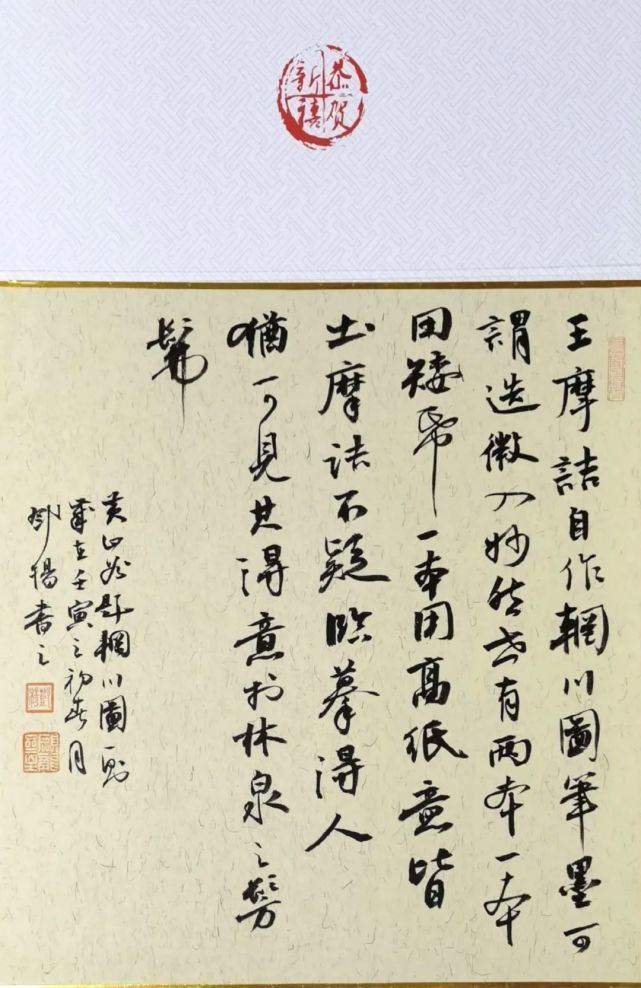 恭贺
新禧
王摩詰自作輞川圖筆墨可
謂造微入妙然世有两本一本
用矮帋一本用高紙意皆
出摩詰不疑臨摹得人
猶可見其得意於林泉之髣
髴
黄山谷題輞川圖一則
歲在壬寅之初春月
揚書之